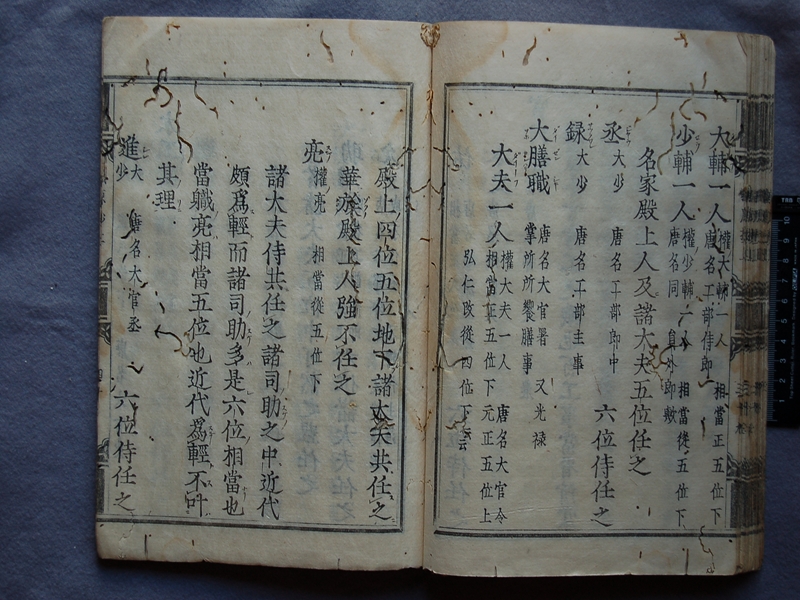 大輔一人 權大輔一人 相當正五位下
唐名工部侍郎
少輔一人 權少輔一人 相當從五位下
唐名同 員外郎歟
名家殿上人及諸大夫五位任之
丞 大少 唐名工部郎中 六位侍任之
録 大少 唐名工部主事
大膳職 唐名大官署 又光禄
掌所所饗膳事
大夫一人 權大夫一人 唐名大官令
相當正五位下 元正五位上
弘仁改從四位下云云
殿上四位五位地下諸大夫共任之
華族殿上人強不任之
亮 權亮 相當從五位下
諸大夫侍共任之諸司助之中近代
頗爲輕而諸司助多是六位相當也
當職亮相當五位也近代爲輕不叶
其理
進 大少 唐名大官丞 六位侍任之